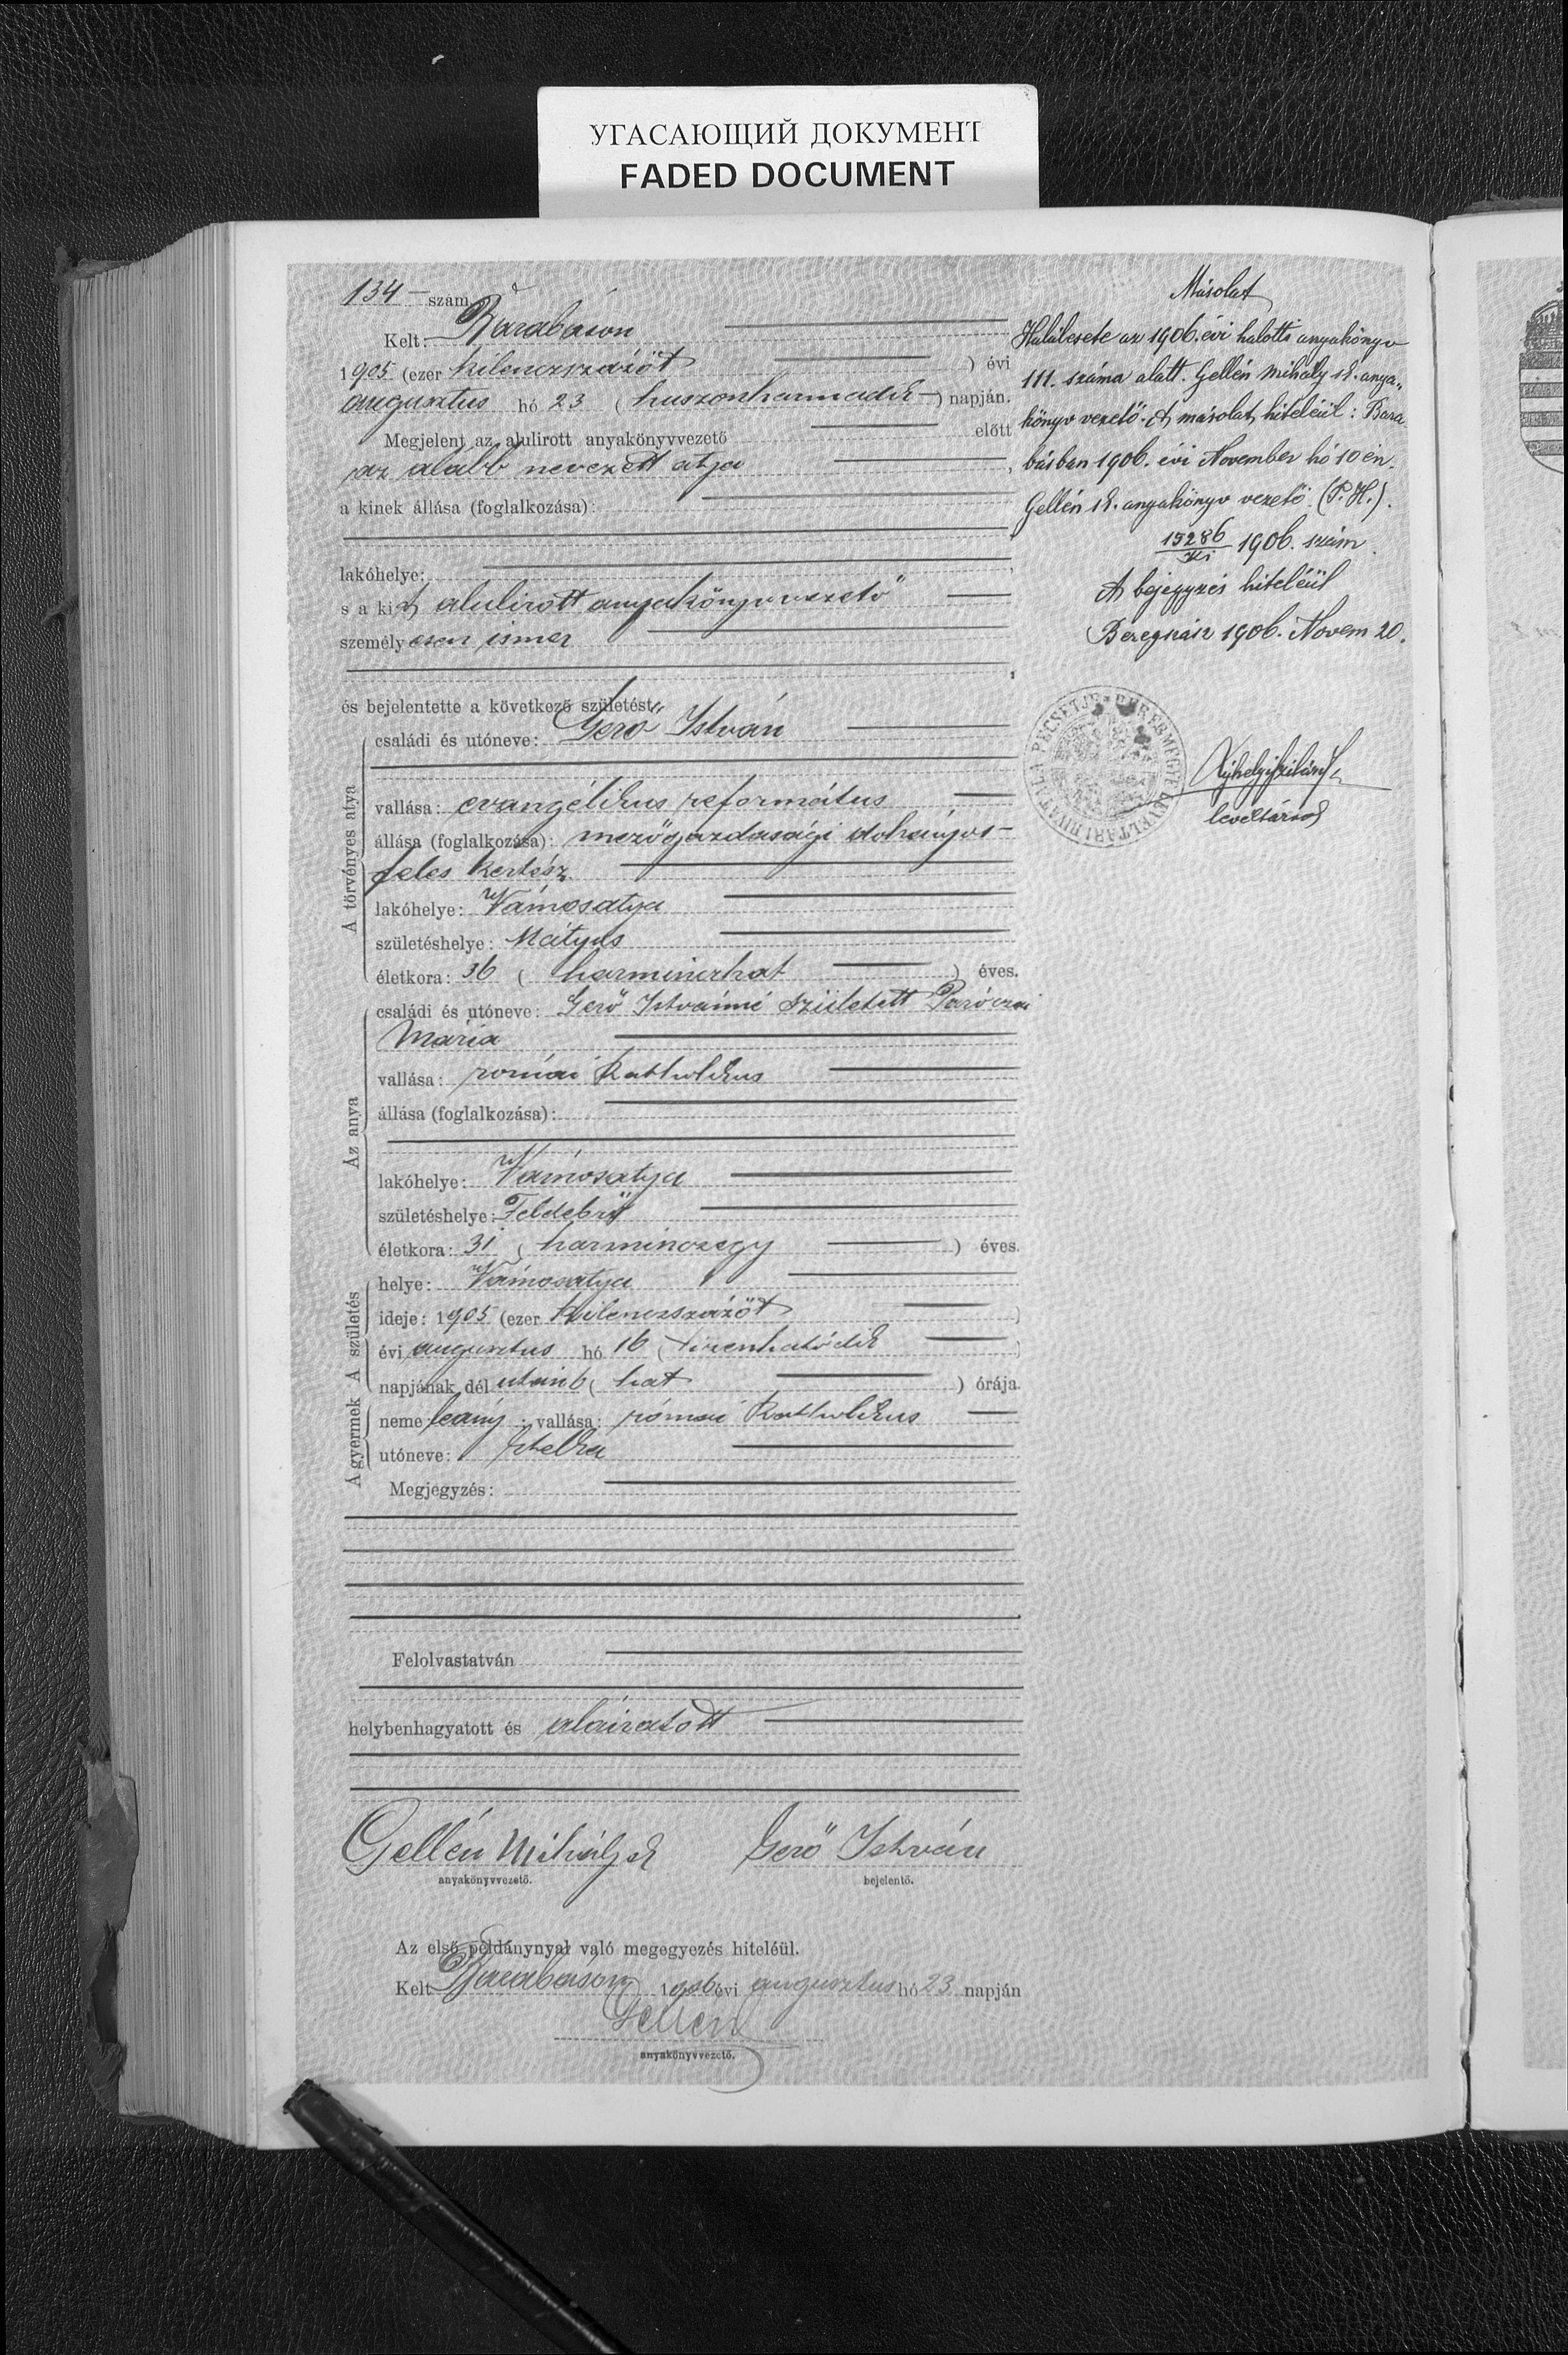 УГАСАЮЩИЙ ДОКУМЕНТ
FADED DOCUMENT
134 szám
Kelt: Barabáson
1905 (ezer kilenczszázöt ) évi
augusztus hó 23 ( huszonharmadik ) napján.
Megjelent az alulirott anyakönyvvezető előtt
az alább nevezett atya ,
a kinek állása (foglalkozása):
lakóhelye: ,
s a kit alulirott anyakönyvvezető
személyesen ismer
,
és bejelentette a következő születést:
A törvényes atya
családi és utóneve: Gerő István
vallása: evangélikus református
állása (foglalkozása): mezőgazdasági dohányos
feles kertész
lakóhelye: Vámosatya
születéshelye: Mátyus
életkora: 36 ( harminczhat ) éves.
Az anya
családi és utóneve: Gerő Istvánné született Paróczai
Mária
vallása: római katholikus
állása (foglalkozása):
lakóhelye: Vámosatya
születéshelye: Feldebrő
életkora: 31 ( harminczegy ) éves.
A születés
helye: Vámosatya
ideje: 1905 (ezer kilenczszázöt )
évi augusztus hó 16 ( tizenhatódik )
napjának dél után 6 ( hat ) órája.
A gyermek
neme leány ; vallása: római katholikus
utóneve: Etelka
Megjegyzés:
Felolvastatván
helybenhagyatott és aláiratott
Gellén Mihály sk Gerő István
anyakönyvvezető. bejelentő.
Az első példánynyal való megegyezés hiteléül.
Kelt Barabáson 1906 évi augusztus hó 23 napján
Gellén
anyakönyvvezető.
Másolat
Halálesete az 1906. évi halotti anyakönyv
111. száma alatt. Gellén Mihály sk. anya„
könyv vezető. A másolat hiteléül: Bara
básban 1906. évi November hó 10 én.
Gellén sk. anyakönyv vezető. (P. H.).
15286 1906. szám
A bejegyzés hiteléül
Beregszász 1906. Novem 20.
BEREGMEGYE LEVÉLTÁRI HIVATALA PECSÉTJE
levéltárnok